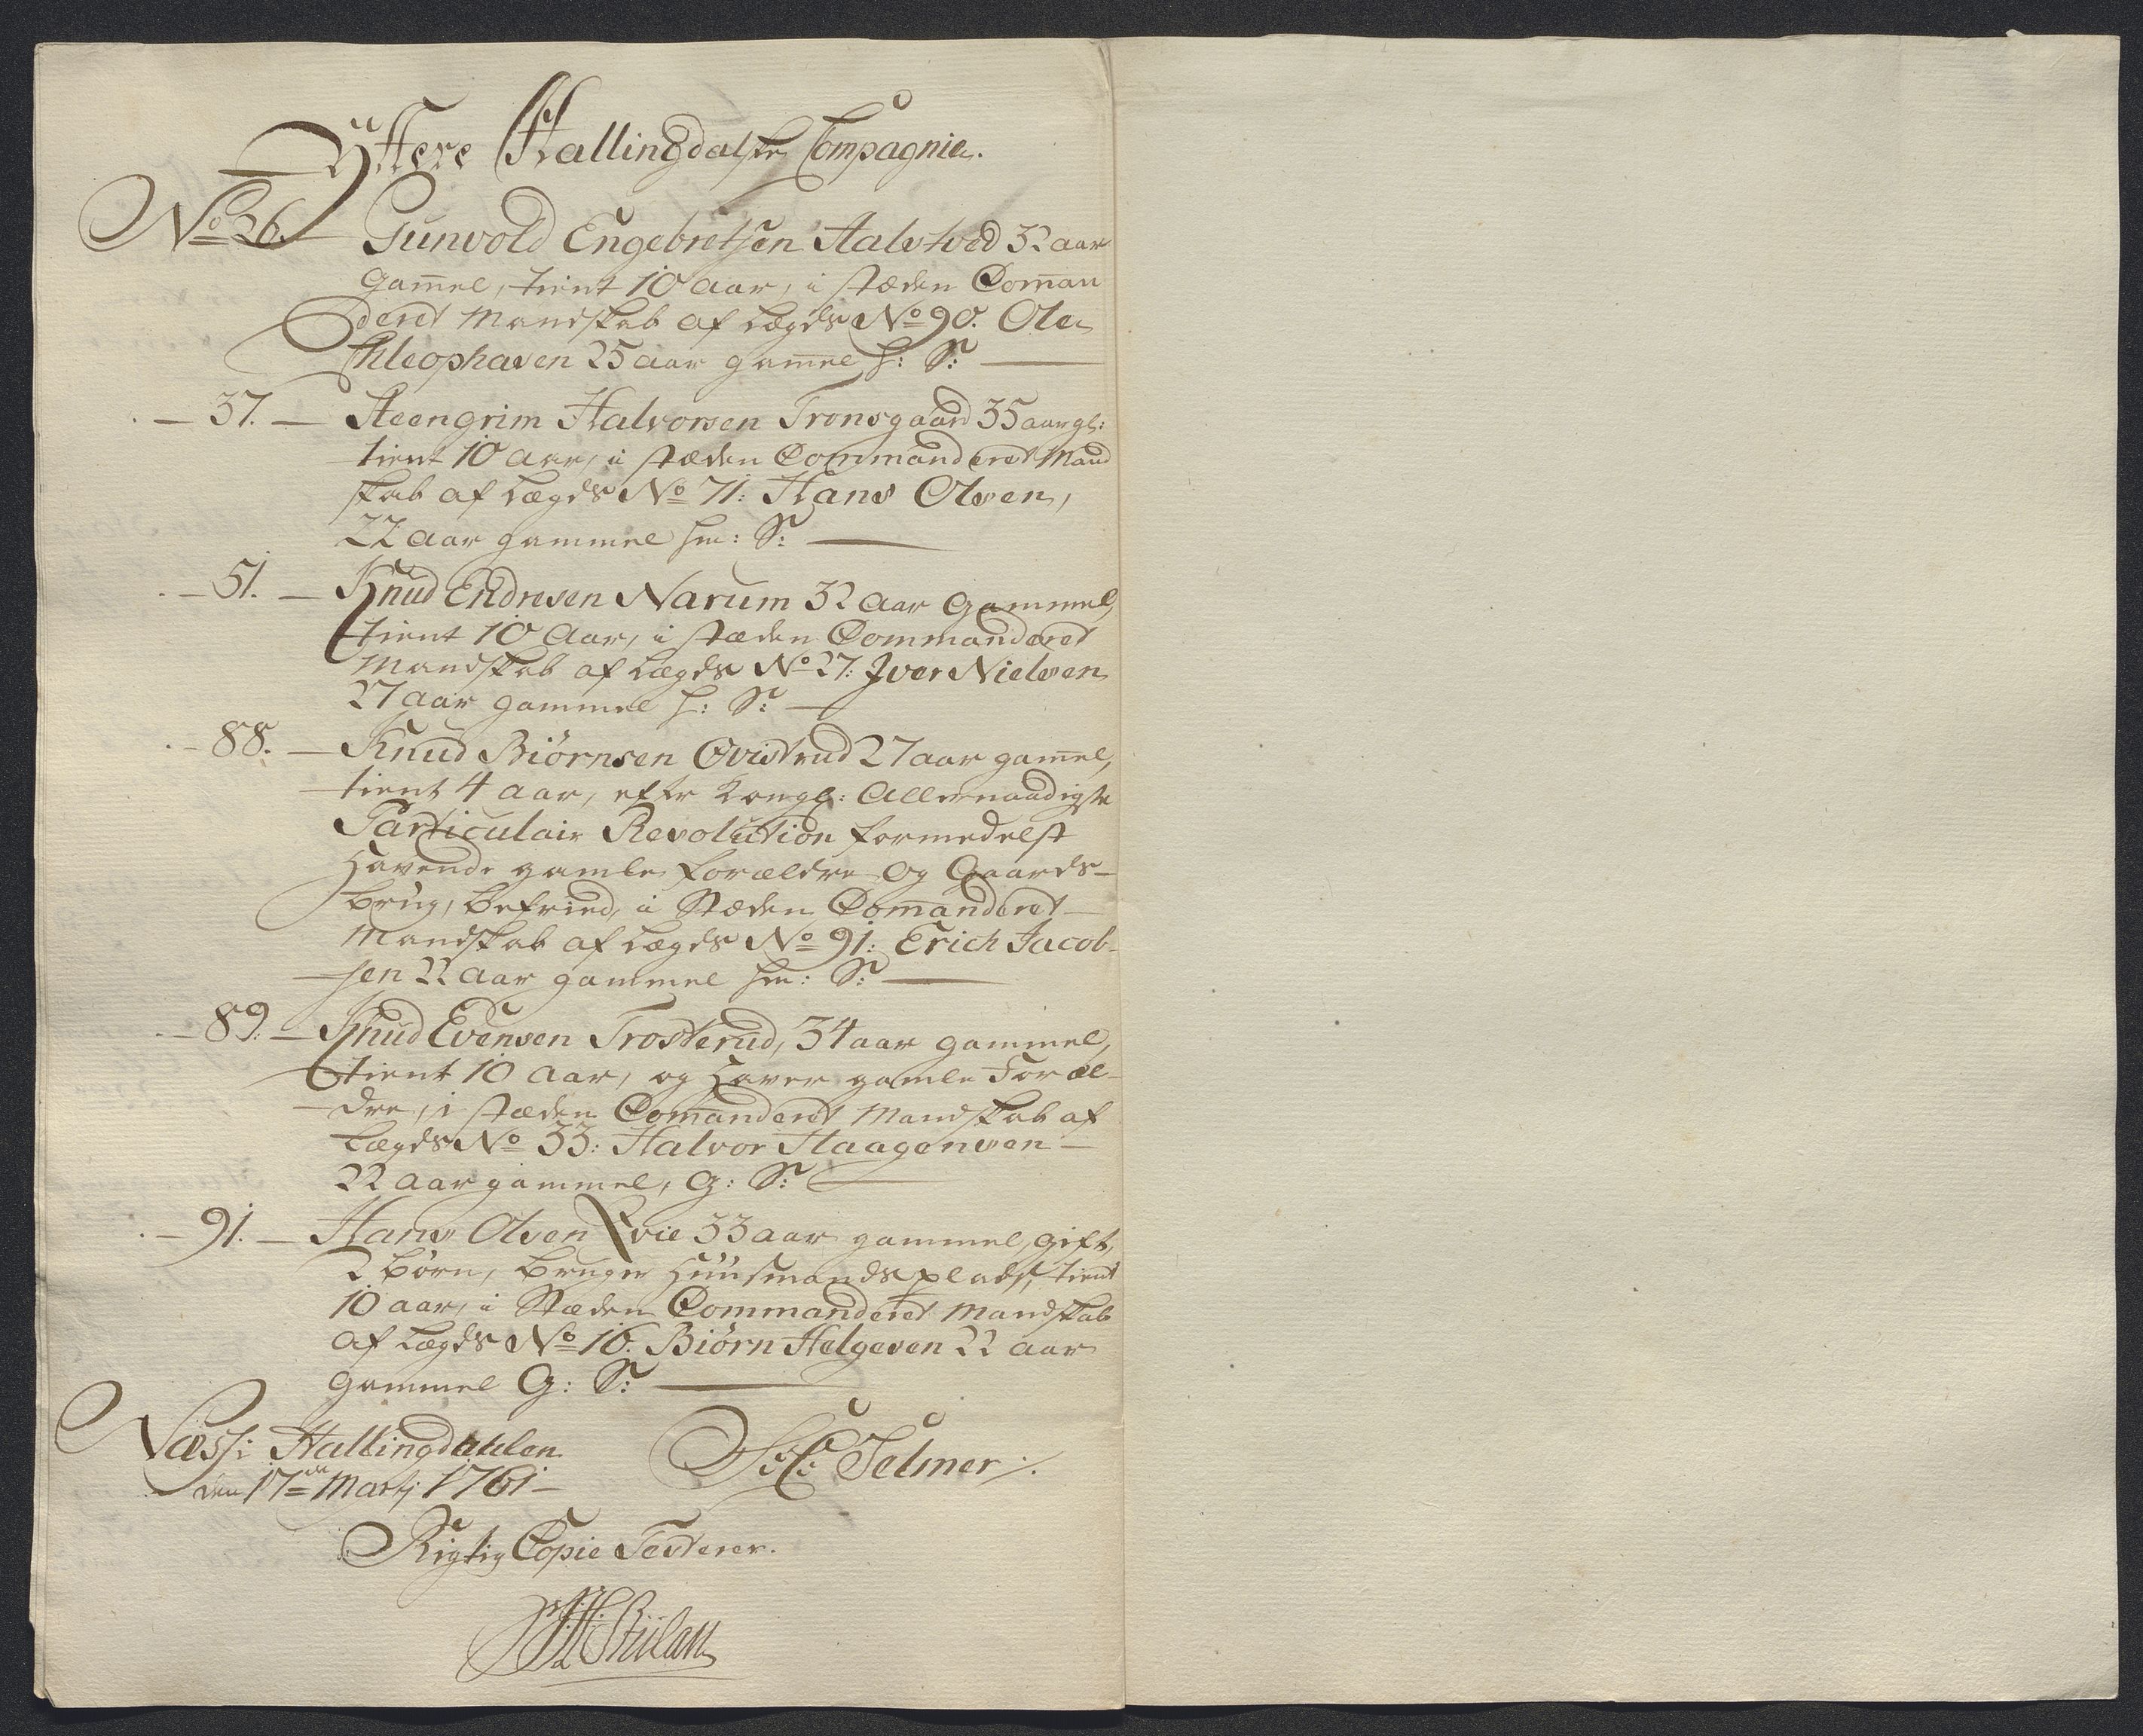 Ÿttere Hallingdalske Compagnie.
No 36. Gunvold Engebretsen Halstved 32 aar
gam̄el, tient 10 aar, i stæden Com̄an
deret Mandskab af Lægds No 90. Ole
Chleophasen 25 aar gam̄el h: S:
- 37. - Steengrim Halvorsen Tronsgaard 35 aar gl:
tient 10 aar, i stæden Commanderet Mand
skab af Lægds No 71: Hans Olsen,
22 aar gammel hm: S:
- 51. - Knud Endresen Narum 32 aar gammel,
tient 10 Aar, i stæden Commanderet
Mandskab af Lægds No 27: Iver Nielsen
27 aar gammel h: S:
- 88. - Knud Biørnsen Qvistrud 27 aar gam̄el,
tient 4 aar, efter Kongl: Allernaadigste
Particulair Resolution formedelst
havende gamle forældre og Gaards-
brug, befried, i Stæden Com̄anderet
Mandskab af Lægds No 91: Erich Jacob-
sen 22 aar gammel hm: S:
- 89. - Knud Evensen Trosterud, 34 aar gammel,
tient 10 aar, og haver gamle Foræl-
dre, i stæden Com̄anderet Mandskab af
Lægds No 33: Halvor Haagensen
22 aar gammel, G: S:
- 91. - Hans Olsen Evie 33 aar gammel, gift,
2 børn, bruger Huusmands plads, tient
10 aar, i Stæden Commanderet Mandskab
af Lægds No 16. Biørn Helgesen 22 aar
gammel G: S:
Næss i Hallingdahlen
den 17de Martj 1761
Selmer
Rigtig Copie Testerer.